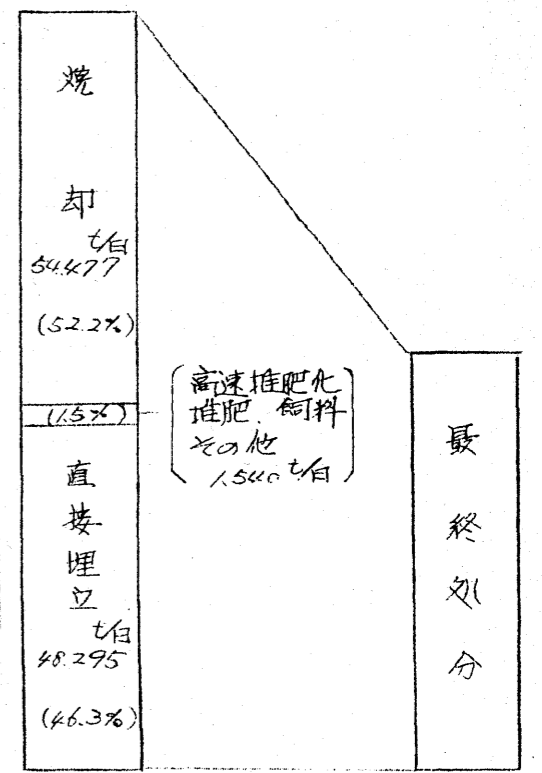 焼
却
t/日
54.477
(52.2%)
(1.5%)
高速堆肥化
堆肥、飼料
その他
1.540 t/日
直
接
埋
立
t/日
48.295
(46.3%)
最
終
処
分